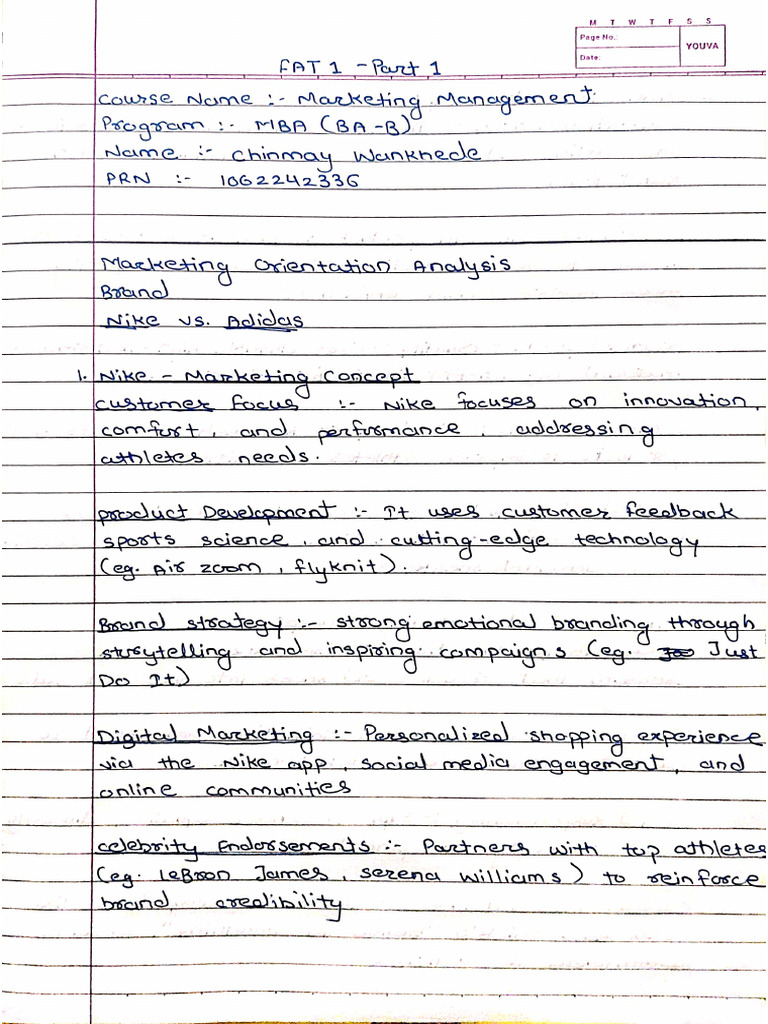 M T W T F S S
Page No.:
YOUVA
Date:
FAT 1 - Part 1
Course Name :- Marketing Management
Program :- MBA (BA-B)
Name :- Chinmay Wankhede
PRN :- 1062242336
Marketing Orientation Analysis
Brand
Nike vs. Adidas
1. Nike - Marketing Concept
Customer Focus :- Nike focuses on innovation,
comfort, and performance, addressing
athletes needs.
Product Development :- It uses customer feedback
sports science, and cutting-edge technology
(eg. Air Zoom, flyknit).
Brand strategy :- strong emotional branding through
storytelling and inspiring campaigns (eg. Just
Do It)
Digital Marketing :- Personalized shopping experience
via the Nike app, social media engagement, and
online communities
Celebrity Endorsements :- Partners with top athletes
(eg. LeBron James, Serena Williams) to reinforce
brand credibility